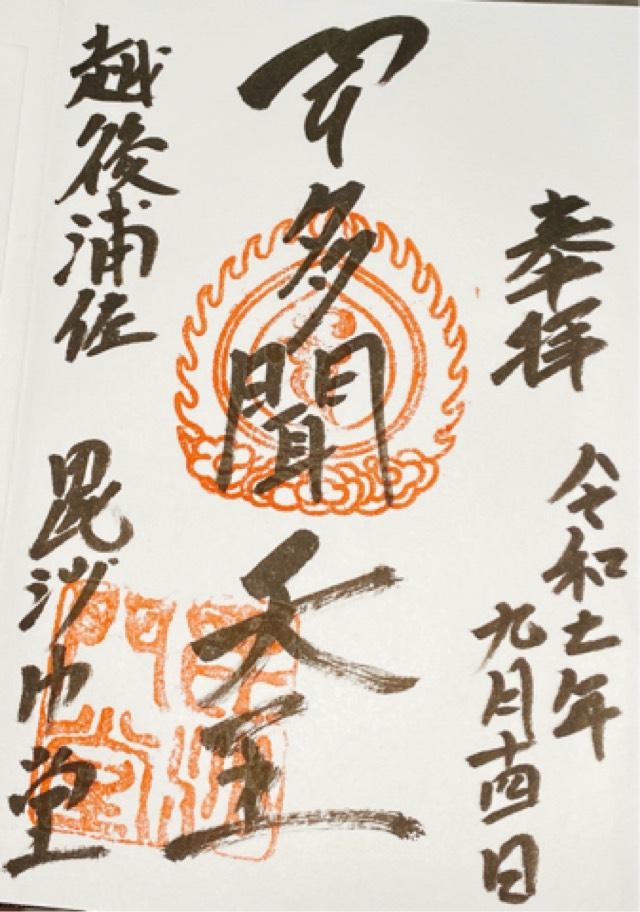 奉拝
令和年
九月十四日
多聞天王
越後浦佐　毘沙門堂